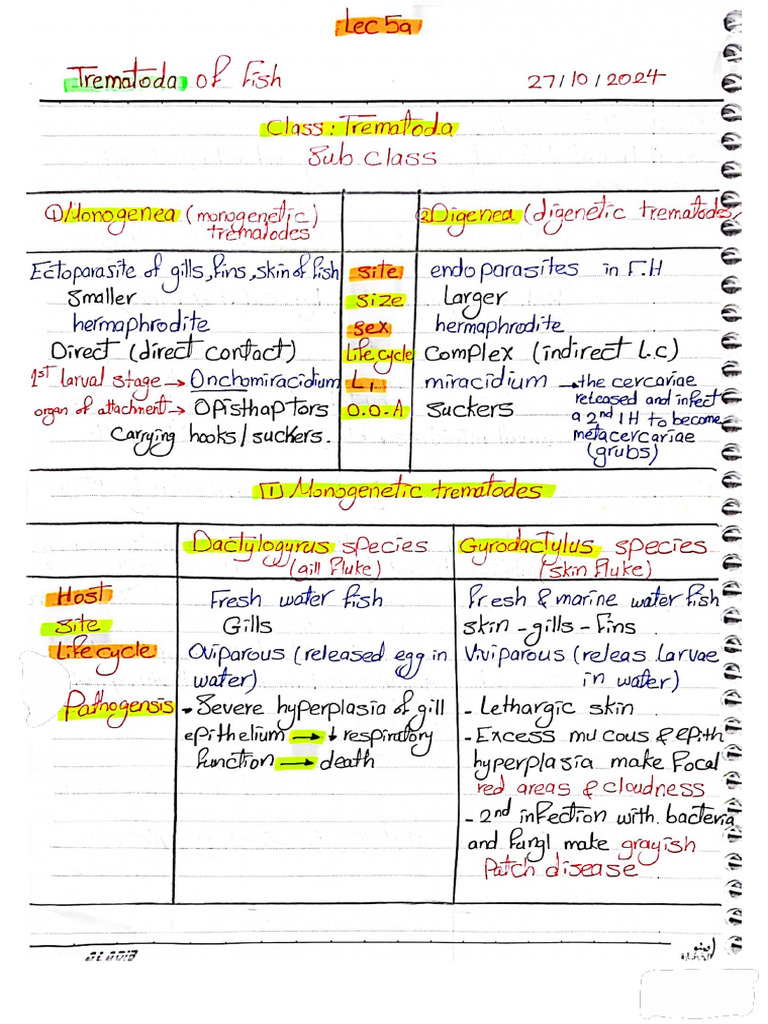 Lec 5a
Trematoda of Fish 27/10/2024
Class: Trematoda
Sub Class
① Monogenea (monogenetic) trematodes
② Digenea (digenetic trematodes)
Ectoparasite of gills, fins, skin of fish site endoparasites in F.H
Smaller size Larger
hermaphrodite sex hermaphrodite
Direct (direct contact) Life cycle Complex (indirect L.c)
1st larval stage → Onchomiracidium L1 miracidium → the cercariae
released and infect
organ of attachment → Opisthaptors O.O.A suckers
a 2nd IH to become
Carrying hooks/suckers.
metacercariae
(grubs)
① Monogenetic trematodes
Dactylogyrus species Gyrodactylus species
(gill fluke) (skin fluke)
Host Fresh water fish fresh & marine water fish
site Gills skin - gills - Fins
Life cycle Oviparous (released egg in Viviparous (releas Larvae
water) in water)
Pathogensis - Severe hyperplasia of gill - Lethargic skin
epithelium → ↓ respiratory - Excess mucous & epith
function → death hyperplasia make Focal
red areas & cloudness
- 2nd infection with bacteria
and fungl make grayish
Patch disease